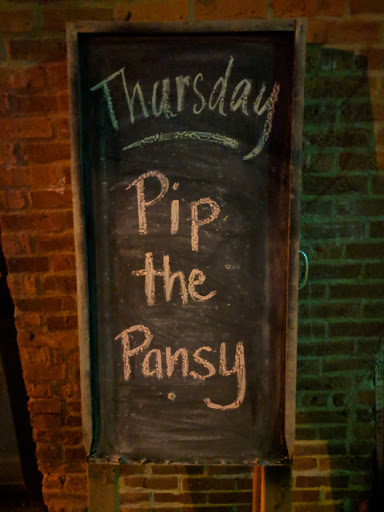 Thursday
Pip
the
Pansy